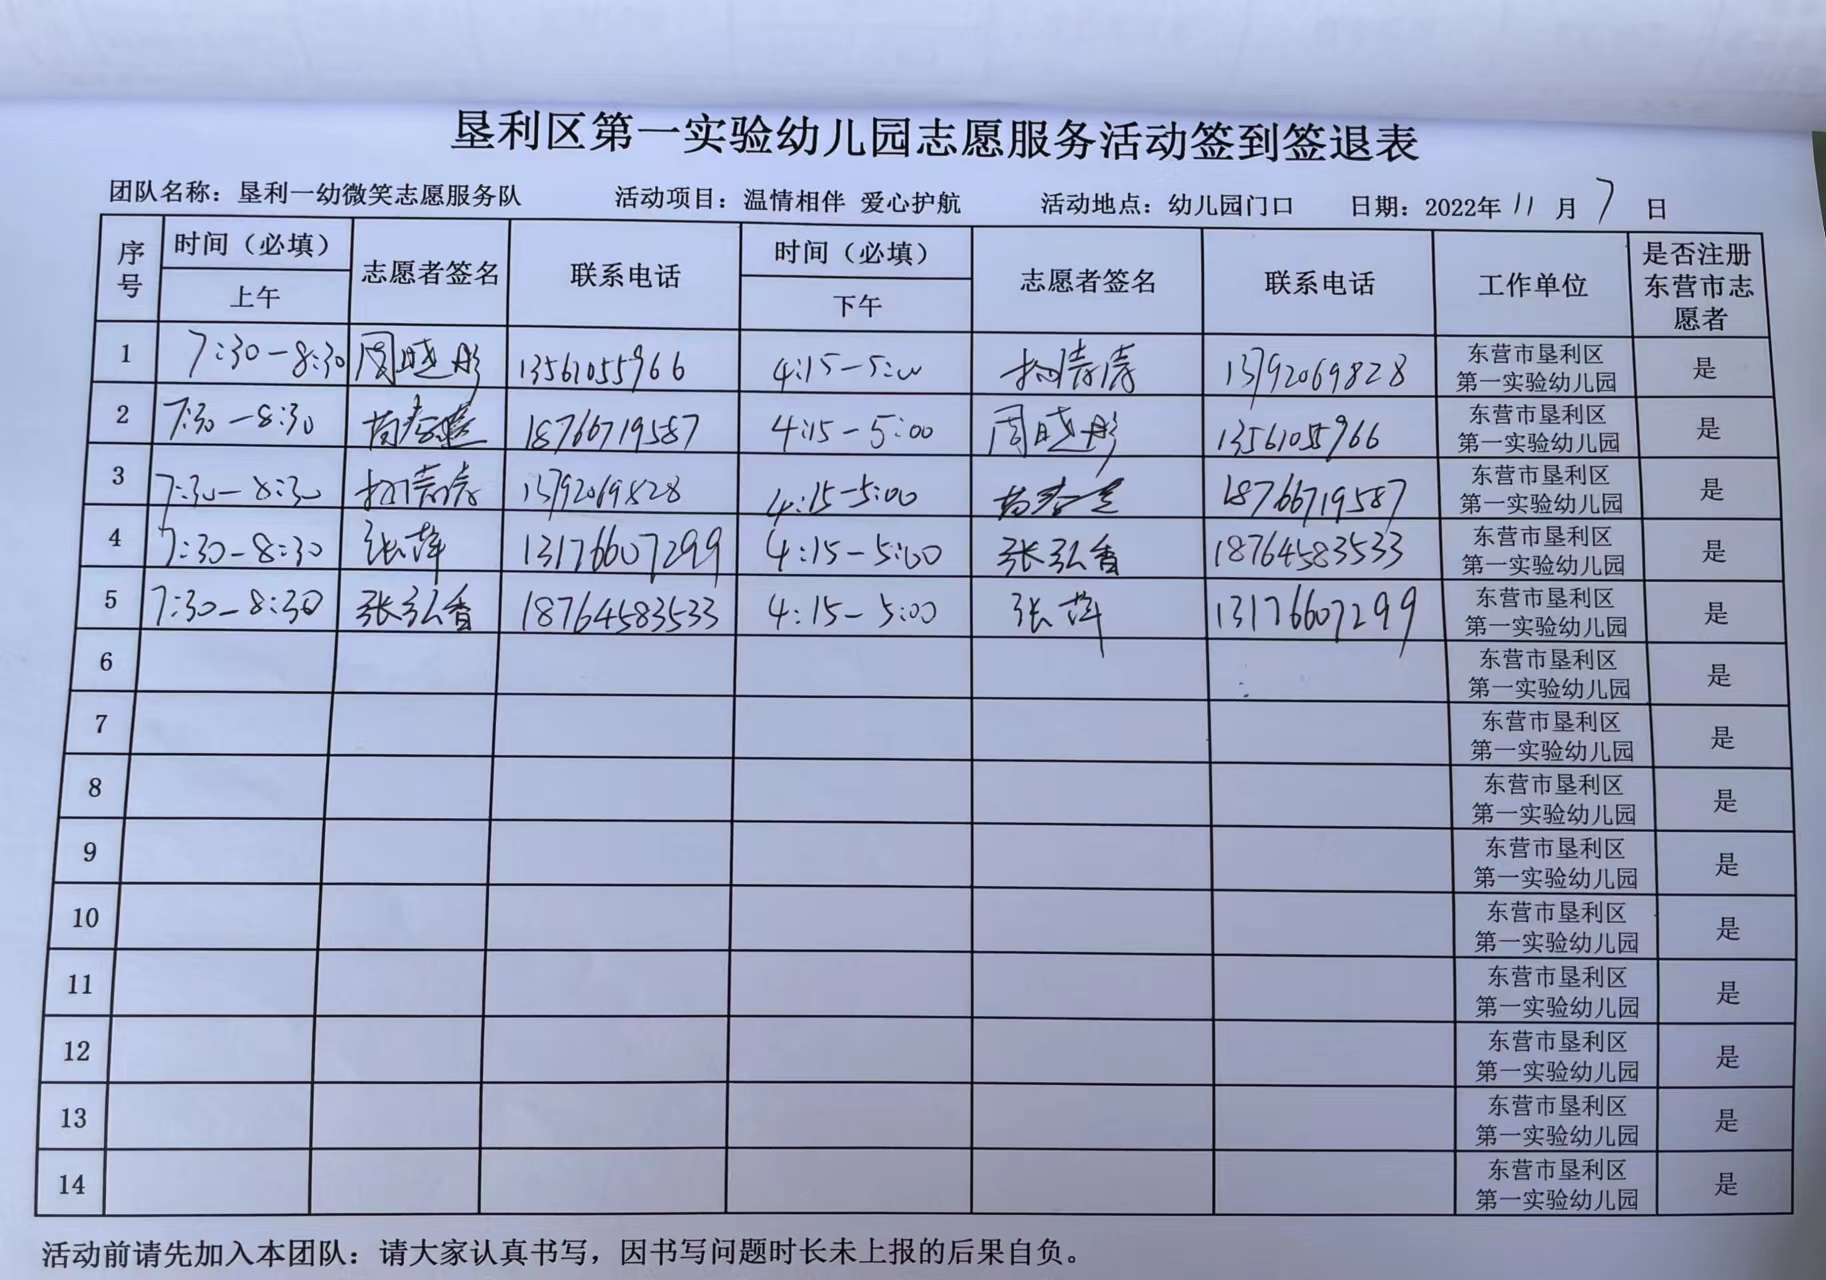 垦利区第一实验幼儿园志愿服务活动签到签退表
团队名称：垦利一幼微笑志愿服务队 活动项目：温情相伴 爱心护航 活动地点：幼儿园门口 日期：2022年 11 月 7 日
序号 时间（必填）上午 志愿者签名 联系电话 时间（必填）下午 志愿者签名 联系电话 工作单位 是否注册东营市志愿者
1 7:30-8:30 周晓彤 13561055966 4:15-5:00 13792069828 东营市垦利区第一实验幼儿园 是
2 7:30-8:30 18766719587 4:15-5:00 周晓彤 13561055966 东营市垦利区第一实验幼儿园 是
3 7:30-8:30 13792069828 4:15-5:00 18766719587 东营市垦利区第一实验幼儿园 是
4 7:30-8:30 张萍 13176607299 4:15-5:00 张弘香 18764583533 东营市垦利区第一实验幼儿园 是
5 7:30-8:30 张弘香 18764583533 4:15-5:00 张萍 13176607299 东营市垦利区第一实验幼儿园 是
6 东营市垦利区第一实验幼儿园 是
7 东营市垦利区第一实验幼儿园 是
8 东营市垦利区第一实验幼儿园 是
9 东营市垦利区第一实验幼儿园 是
10 东营市垦利区第一实验幼儿园 是
11 东营市垦利区第一实验幼儿园 是
12 东营市垦利区第一实验幼儿园 是
13 东营市垦利区第一实验幼儿园 是
14 东营市垦利区第一实验幼儿园 是
活动前请先加入本团队：请大家认真书写，因书写问题时长未上报的后果自负。